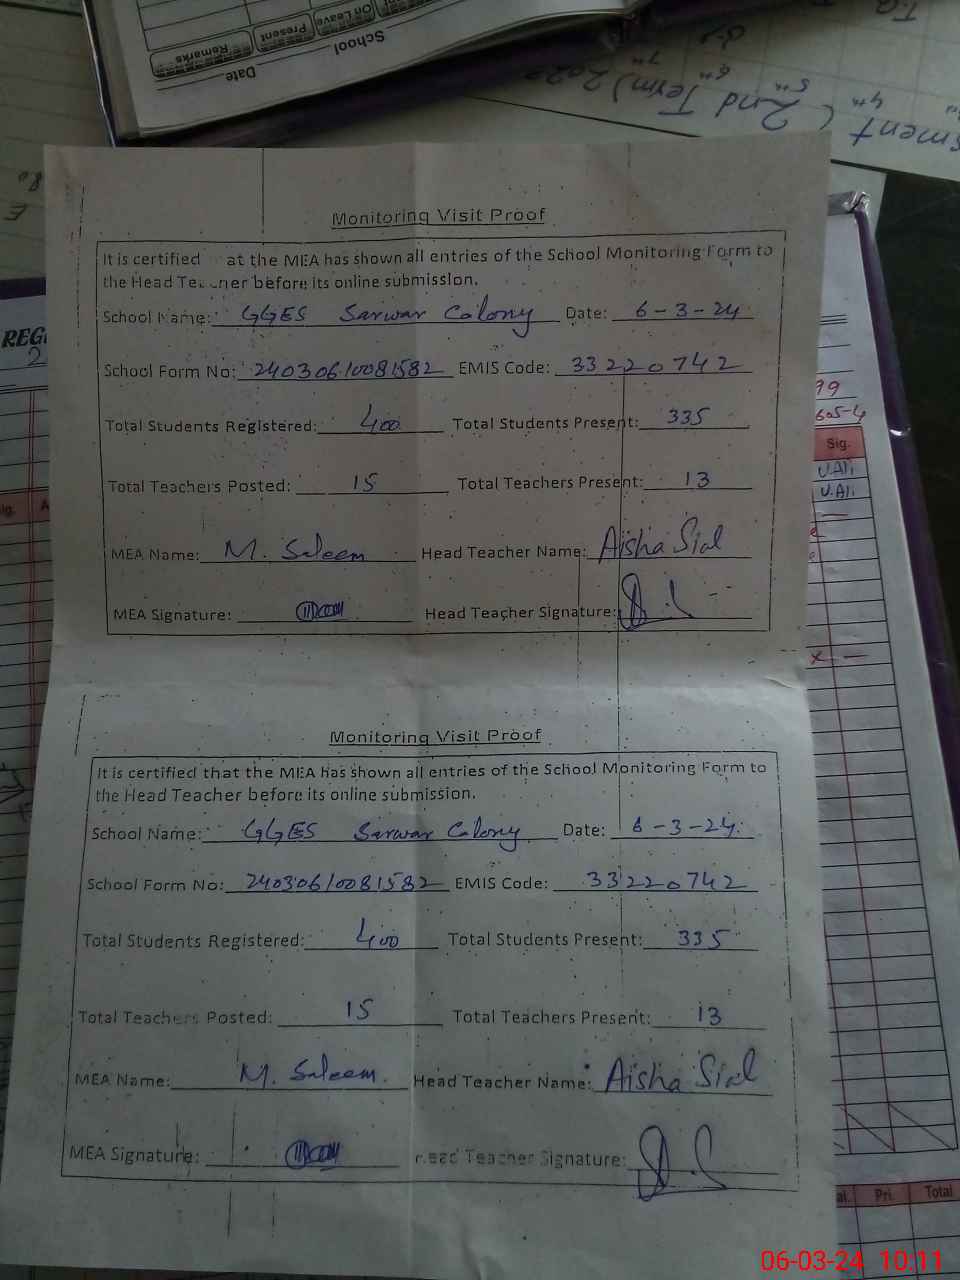 Remarks
Present
On Leave
Date
School
(2nd Term) 2022
4th
5th
6th
7th
T.Q
REGI
2
Monitoring Visit Proof
It is certified at the MEA has shown all entries of the School Monitoring Form to
the Head Teacher before its online submission.
School Name: GGES Sarwar Colony Date: 6-3-24
School Form No: 24030610081582 EMIS Code: 33220742
Total Students Registered: 400 Total Students Present: 335
Total Teachers Posted: 15 Total Teachers Present: 13
MEA Name: M. Saleem Head Teacher Name: Aisha Sial
MEA Signature: Head Teacher Signature:
99
605-4
Sig.
U.Ali
U.Ali
Monitoring Visit Proof
It is certified that the MEA has shown all entries of the School Monitoring Form to
the Head Teacher before its online submission.
School Name: GGES Sarwar Colony Date: 6-3-24
School Form No: 24030610081582 EMIS Code: 33220742
Total Students Registered: 400 Total Students Present: 335
Total Teachers Posted: 15 Total Teachers Present: 13
MEA Name: M. Saleem Head Teacher Name: Aisha Sial
MEA Signature: Head Teacher Signature:
Pri. Total
06-03-24 10:11